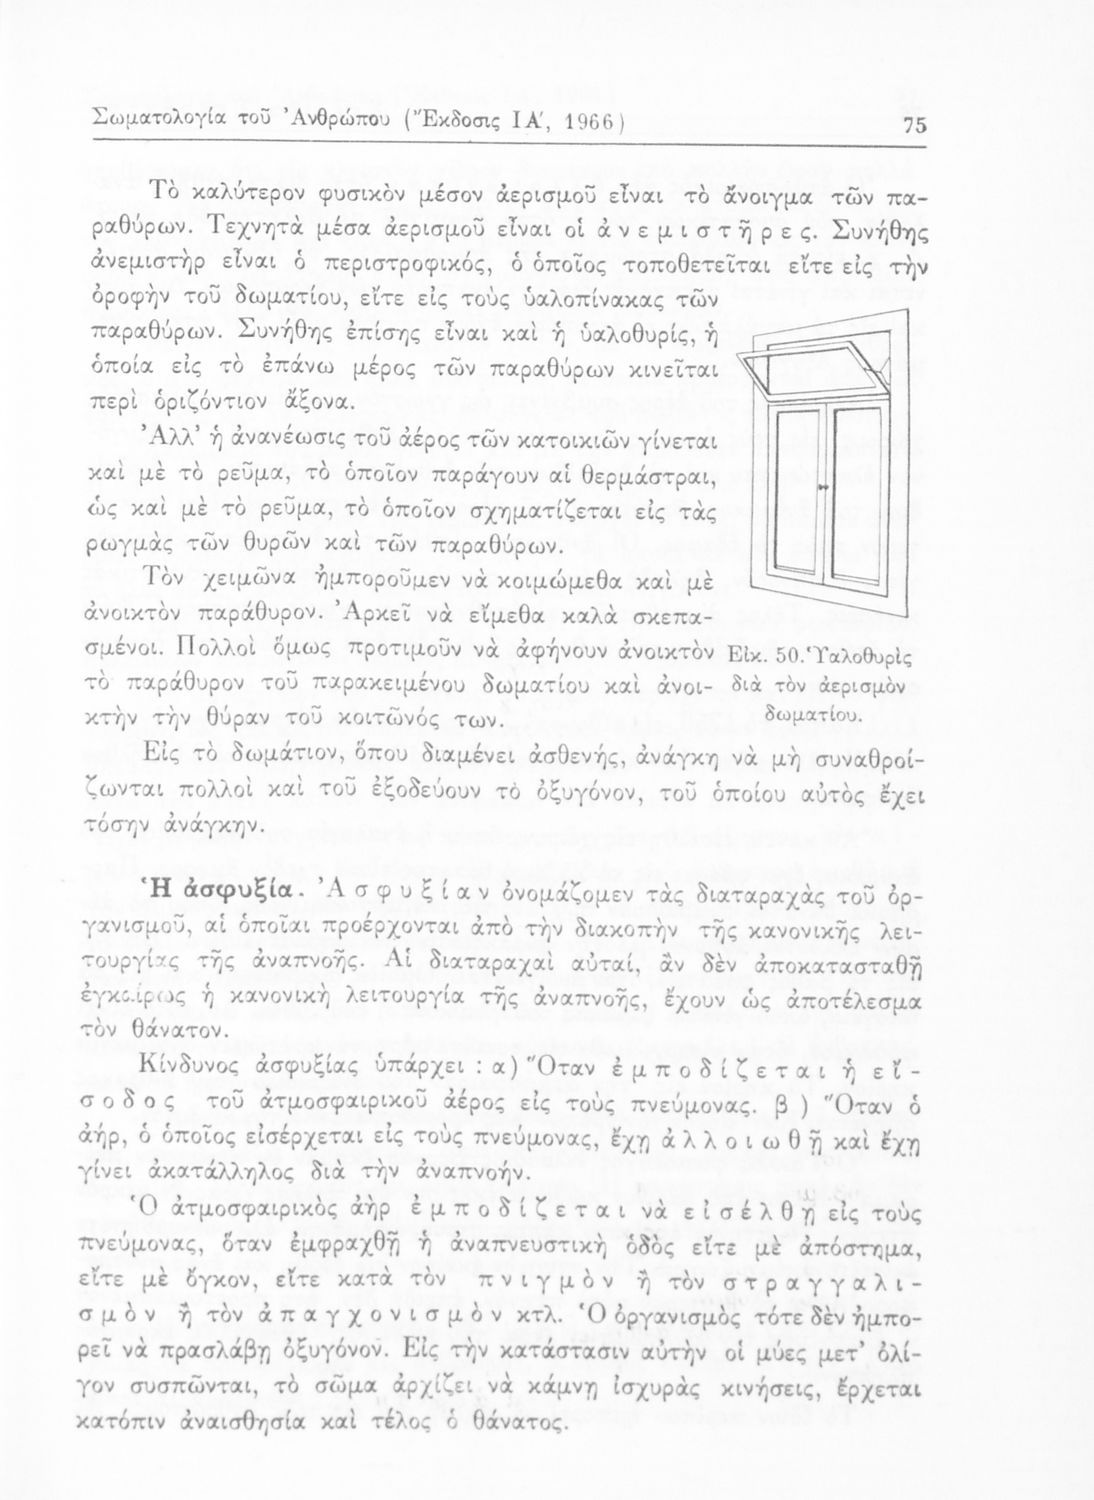 Σωματολογία τοῦ Ἀνθρώπου (Ἔκδοσις ΙΑ', 1966)
75
Τὸ καλύτερον φυσικὸν μέσον ἀερισμοῦ εἶναι τὸ ἄνοιγμα τῶν πα-
ραθύρων. Τεχνητὰ μέσα ἀερισμοῦ εἶναι οἱ ἀνεμιστῆρες. Συνήθης
ἀνεμιστὴρ εἶναι ὁ περιστροφικός, ὁ ὁποῖος τοποθετεῖται εἴτε εἰς τὴν
ὀροφὴν τοῦ δωματίου, εἴτε εἰς τοὺς ὑαλοπίνακας τῶν
παραθύρων. Συνήθης ἐπίσης εἶναι καὶ ἡ ὑαλοθυρίς, ἡ
ὁποία εἰς τὸ ἐπάνω μέρος τῶν παραθύρων κινεῖται
περὶ ὁριζόντιον ἄξονα.
Ἀλλ' ἡ ἀνανέωσις τοῦ ἀέρος τῶν κατοικιῶν γίνεται
καὶ μὲ τὸ ρεῦμα, τὸ ὁποῖον παράγουν αἱ θερμάστραι,
ὡς καὶ μὲ τὸ ρεῦμα, τὸ ὁποῖον σχηματίζεται εἰς τὰς
ρωγμὰς τῶν θυρῶν καὶ τῶν παραθύρων.
Τὸν χειμῶνα ἠμποροῦμεν νὰ κοιμώμεθα καὶ μὲ
ἀνοικτὸν παράθυρον. Ἀρκεῖ νὰ εἴμεθα καλὰ σκεπα-
σμένοι. Πολλοὶ ὅμως προτιμοῦν νὰ ἀφήνουν ἀνοικτὸν
τὸ παράθυρον τοῦ παρακειμένου δωματίου καὶ ἀνοι-
κτὴν τὴν θύραν τοῦ κοιτῶνός των.
Εἰκ. 50. Ὑαλοθυρὶς
διὰ τὸν ἀερισμὸν
δωματίου.
Εἰς τὸ δωμάτιον, ὅπου διαμένει ἀσθενής, ἀνάγκη νὰ μὴ συναθροί-
ζωνται πολλοὶ καὶ τοῦ ἐξοδεύουν τὸ ὀξυγόνον, τοῦ ὁποίου αὐτὸς ἔχει
τόσην ἀνάγκην.
Ἡ ἀσφυξία. Ἀσφυξίαν ὀνομάζομεν τὰς διαταραχὰς τοῦ ὀρ-
γανισμοῦ, αἱ ὁποῖαι προέρχονται ἀπὸ τὴν διακοπὴν τῆς κανονικῆς λει-
τουργίας τῆς ἀναπνοῆς. Αἱ διαταραχαὶ αὐταί, ἂν δὲν ἀποκατασταθῇ
ἐγκαίρως ἡ κανονικὴ λειτουργία τῆς ἀναπνοῆς, ἔχουν ὡς ἀποτέλεσμα
τὸν θάνατον.
Κίνδυνος ἀσφυξίας ὑπάρχει : α) Ὅταν ἐμποδίζεται ἡ εἴ-
σοδος τοῦ ἀτμοσφαιρικοῦ ἀέρος εἰς τοὺς πνεύμονας. β ) Ὅταν ὁ
ἀήρ, ὁ ὁποῖος εἰσέρχεται εἰς τοὺς πνεύμονας, ἔχῃ ἀλλοιωθῆ καὶ ἔχῃ
γίνει ἀκατάλληλος διὰ τὴν ἀναπνοήν.
Ὁ ἀτμοσφαιρικὸς ἀὴρ ἐμποδίζεται νὰ εἰσέλθῃ εἰς τοὺς
πνεύμονας, ὅταν ἐμφραχθῇ ἡ ἀναπνευστικὴ ὁδὸς εἴτε μὲ ἀπόστημα,
εἴτε μὲ ὄγκον, εἴτε κατὰ τὸν πνιγμὸν ἢ τὸν στραγγαλι-
σμὸν ἢ τὸν ἀπαγχονισμὸν κτλ. Ὁ ὀργανισμὸς τότε δὲν ἠμπο-
ρεῖ νὰ πρασλάβῃ ὀξυγόνον. Εἰς τὴν κατάστασιν αὐτὴν οἱ μύες μετ' ὀλί-
γον συσπῶνται, τὸ σῶμα ἀρχίζει νὰ κάμνῃ ἰσχυρὰς κινήσεις, ἔρχεται
κατόπιν ἀναισθησία καὶ τέλος ὁ θάνατος.